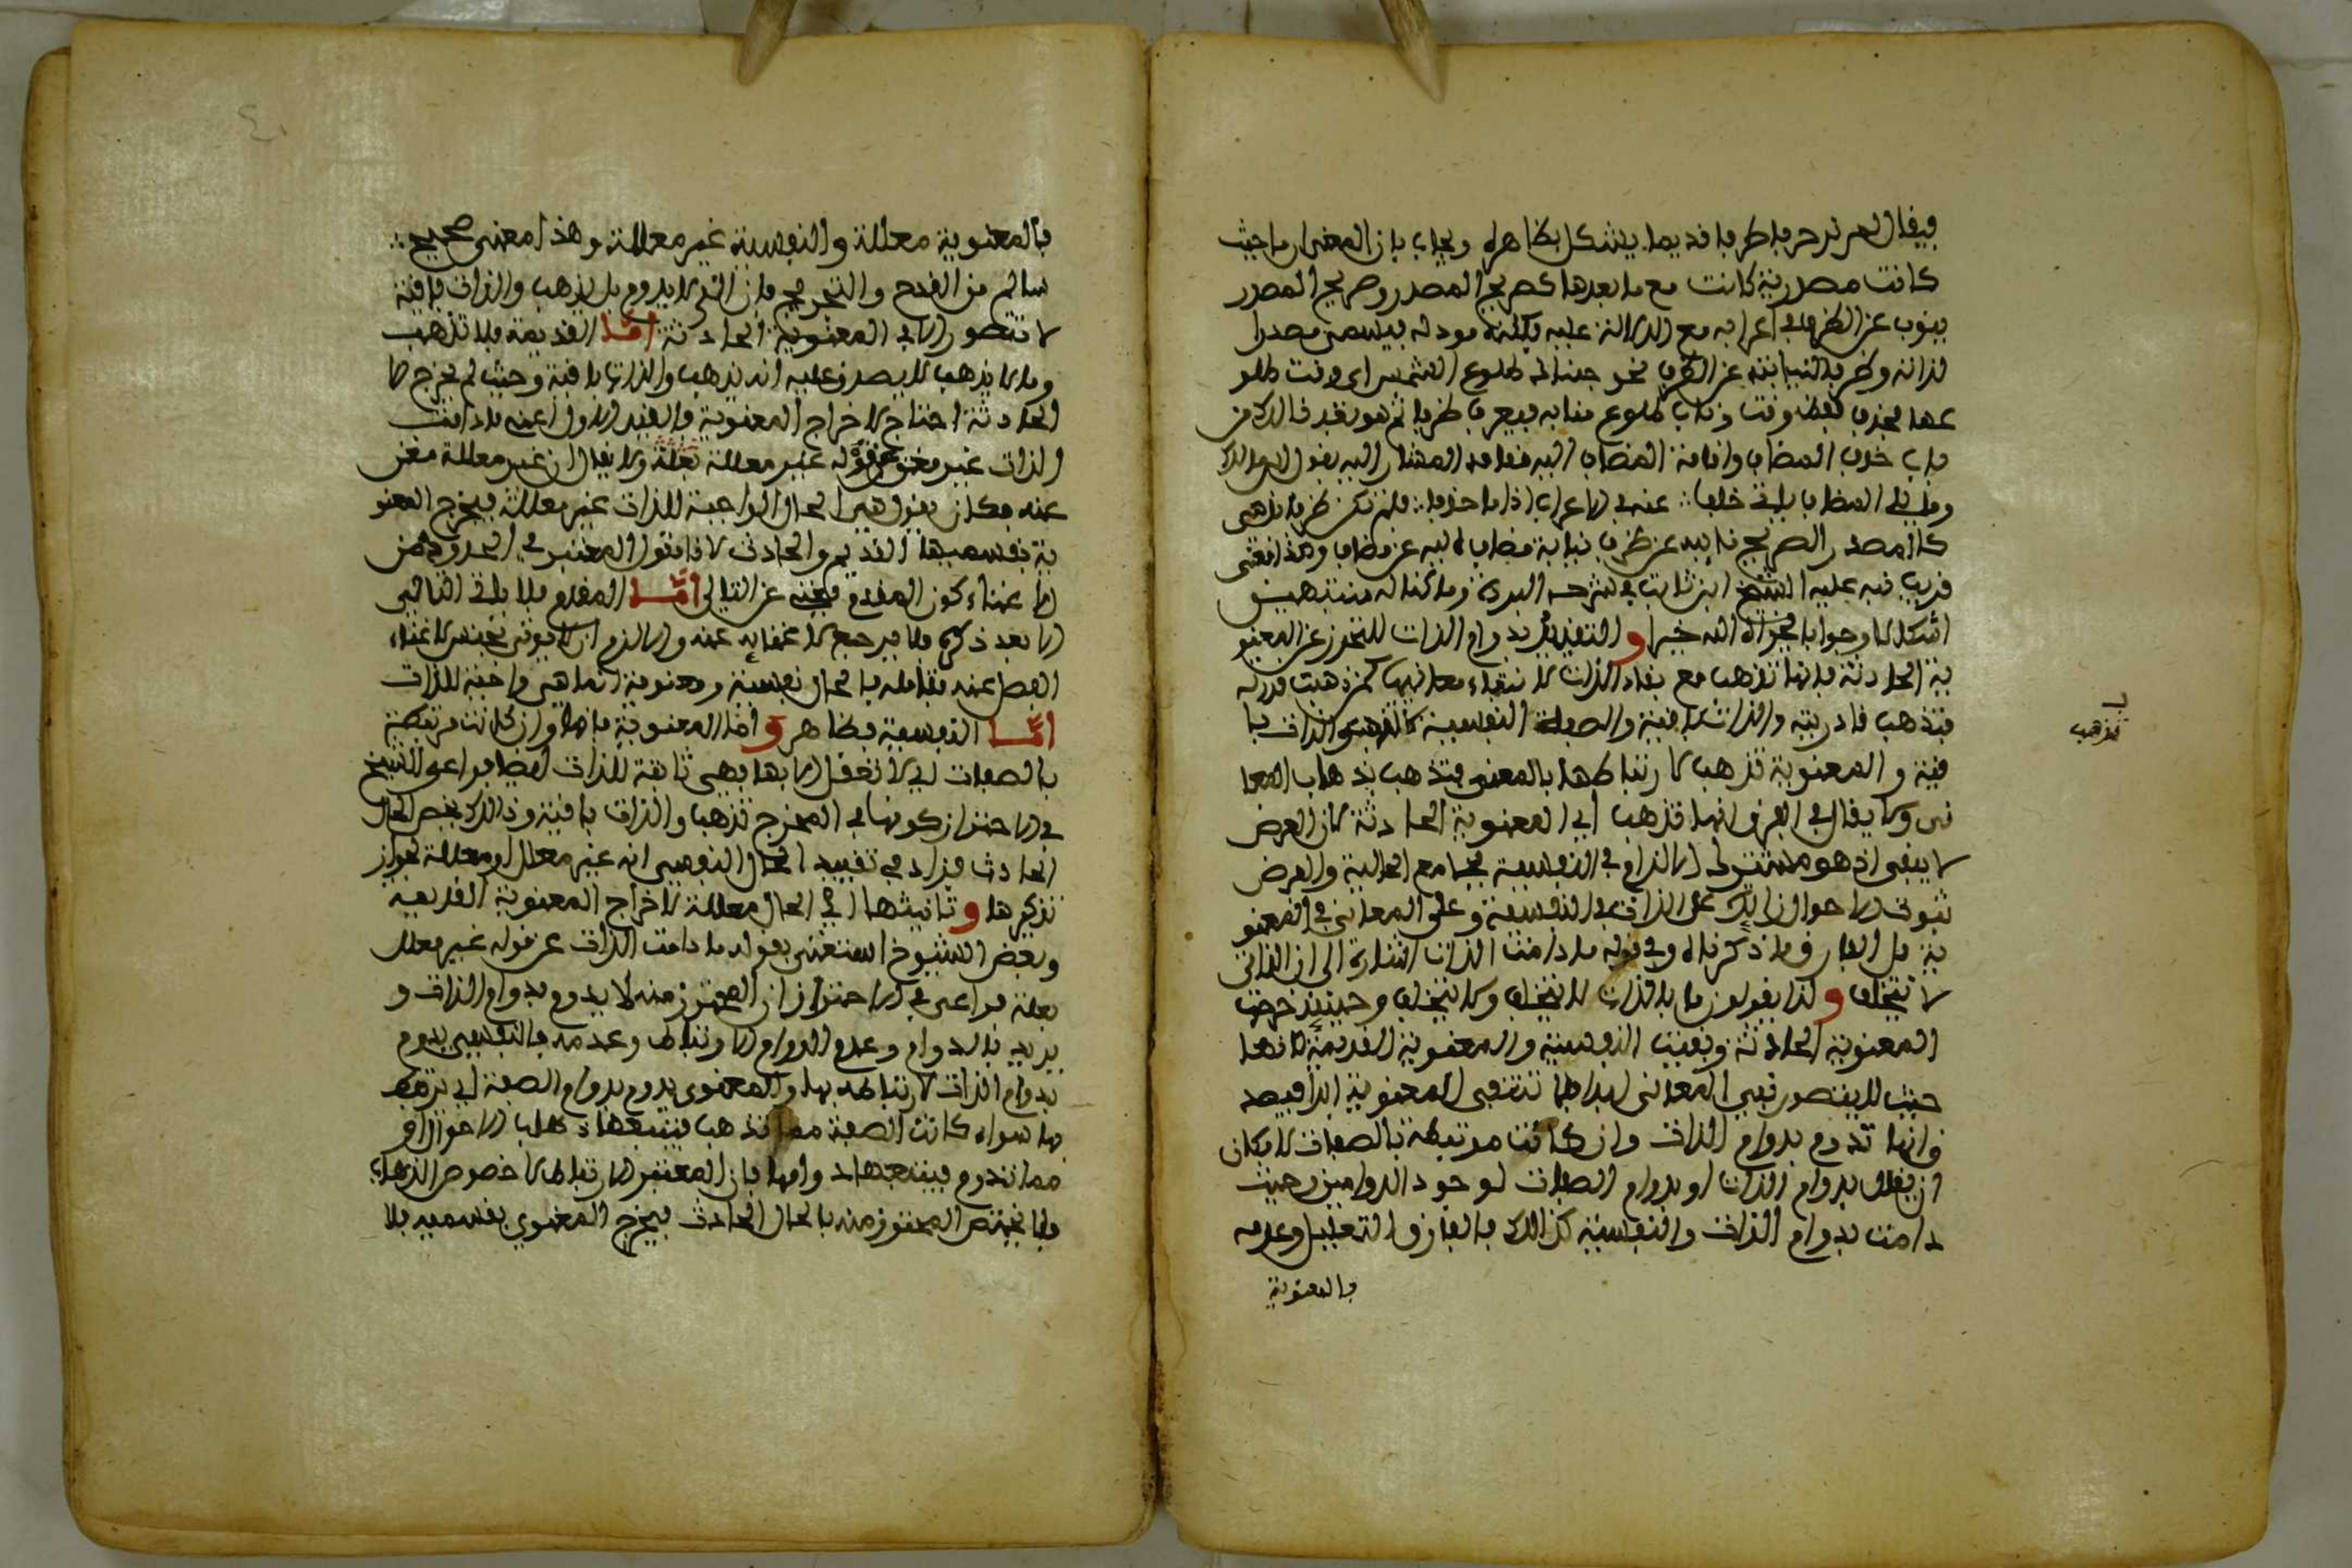 كانت مصدرية كانت مع ما بعدها كصريح المصدر وصريح المصدر
ينوب عن الظرف في اعرابه مع الدلالة عليه مودله فيسمى مصدرا
لذاته وظرفا لنيابته عن الظرف نحو جئتك طلوع الشمس اي وقت طلو
عها فحذف لفظ وقت وناب طلوع منابه فيعرب ظرفا ثم هو بعد ذالك من
باب حذف المضاف واقامة المضاف اليه مقامه المشار اليه بقول
وما يلي المضاف ياتي خلفا ∴ عنه في الاعراب اذا ما حذفا ∴ فلم تكن ظرفا بل هي
كالمصدر الصريح نايبه عن ظرف نيابة مضاف اليه عن مضاف وهذا
قريب نبه عليه الشيخ ابن في شرحه البردة وما كنا له منتبهين
اشكالا وجوابا فجزاه الله خيرا و التقييد بدوام الذات للتحرز عن المعنو
ية الحادثة فانها تذهب مع بقاء الذات لانتفاء معانيها كمن ذهبت قدرته
فتذهب قادريته والذات باقية والصفة النفسية لا تذهب والذات با
تذهب
قية و المعنوية تذهب لارتباطها بالمعنى فتذهب بذهاب المعا
نى ولا يقال في الفرق انها تذهب اي المعنوية الحادثة لان العرض
لا يبقى اذ هو مشترك الالزام في النفسية بجامع الحالية والعرض
ثبوت الاحوال زايد على الذات في النفسية وعلى المعاني في المعنو
ية بل الفارق ما ذكرناه وفي قوله ما دامت الذات اشارة الى ان الذاتي
لا يتخلف و لذا يقولون ما بالذات لا يختلف ولا يتخلف وحينئذ خرجت
المعنوية الحادثة وبقيت النفسية والمعنوية القديمة لانها
حيث لا يتصور نفي المعاني ابدا فلا تنتفي المعنوية ابدا فيصد
ق انها تدوم بدوام الذات وان كانت مرتبطة بالصفات لامكان
ان يقال بدوام الذات او بدوام الصفات لوجود الدوامين وحيث
دامت بدوام الذات والنفسية كذالك فالفارق التعليل وعدمه
فالمعنوية
فالمعنوية معللة والنفسية غير معللة وهذا معنى صحيح ∴
سالم من القدح والتجريح فان التي لا يدوم بل يذهب والذات باقية
لا تتصور الا في المعنوية الحادثة امّا القديمة فلا تذهب
وما لا يذهب لا يصدق عليه انه يذهب والذات باقية وحيث لم يخرج الا
الحادثة احتاج لاخراج المعنوية بالقيد الاول اعني ما دامت
الذات غير قوله غير معللة بعلة ولا يقال ان غير معللة مغن
عنه فكان يقول هي الحال الواجبة للذات غير معللة فيخرج المعنو
ية بقسميها القديم والحادث لانا نقول المعتبر في الحدود من
الاغناء كون المقدم يغني عن التالي امّا المقدم فلا ياتي التالي
الا بعد ذكره فلا يرجع لاغنايه عنه والا لزم ان لا يوتى بجنس لاغناء
الفصل عنه فقابله بالحال نفسية ومعنوية انما هي واجبة للذات
امّا النفسية فظاهر و اما المعنوية فانها وان كانت مرتبطة
بالصفات اي لا تعقل الا بها فهي ثابتة للذات ايضا فراعى الشيخ
في الاحتراز كونها في المخرج تذهب والذات باقية وذالك يخص الحال
الحادث فزاد في تقييد الحال النفسي انه غير معلل او معللة لجواز
تذكيرها و تانيثها اي الحال معللة لاخراج المعنوية القديمة
وبعض الشيوخ استغنى بقوله ما دامت الذات عن قوله غير معلل
بعلة فراعى في الاحتراز ان المحترز منه لا يدوم بدوام الذات و
يريد بالدوام وعدم الدوام الارتباط وعدمه فالنفسي يدوم
بدوام الذات لارتباطه بها والمعنوي يدوم بدوام الصفة اي يرتبط
بها سواء كانت الصفة مما تذهب فيتبعها ذهاب الاحوال او
مما تدوم فيتبعها دوامها فان المعتبر الارتباط لا خصوص الذهاب
فلا يختص المحترز منه بالحال الحادث فيخرج المعنوي بقسميه بلا